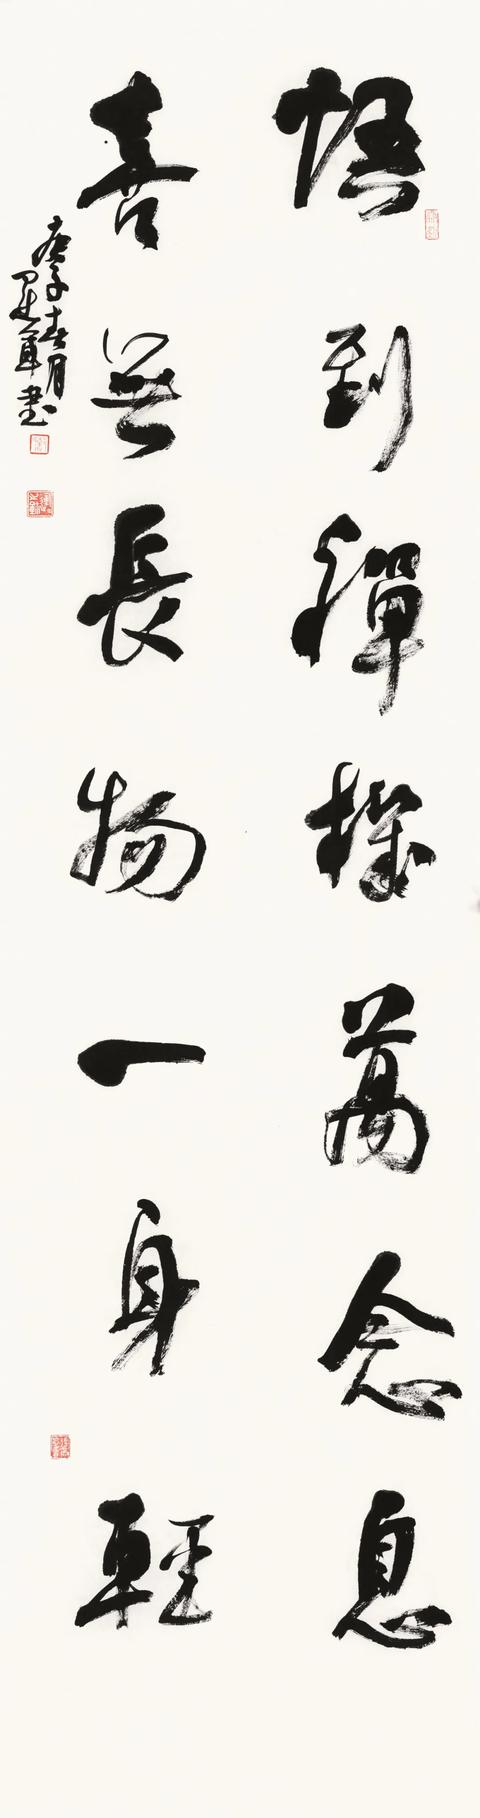 悟到禪機萬念息
喜無長物一身輕
庚子春月
建軍書